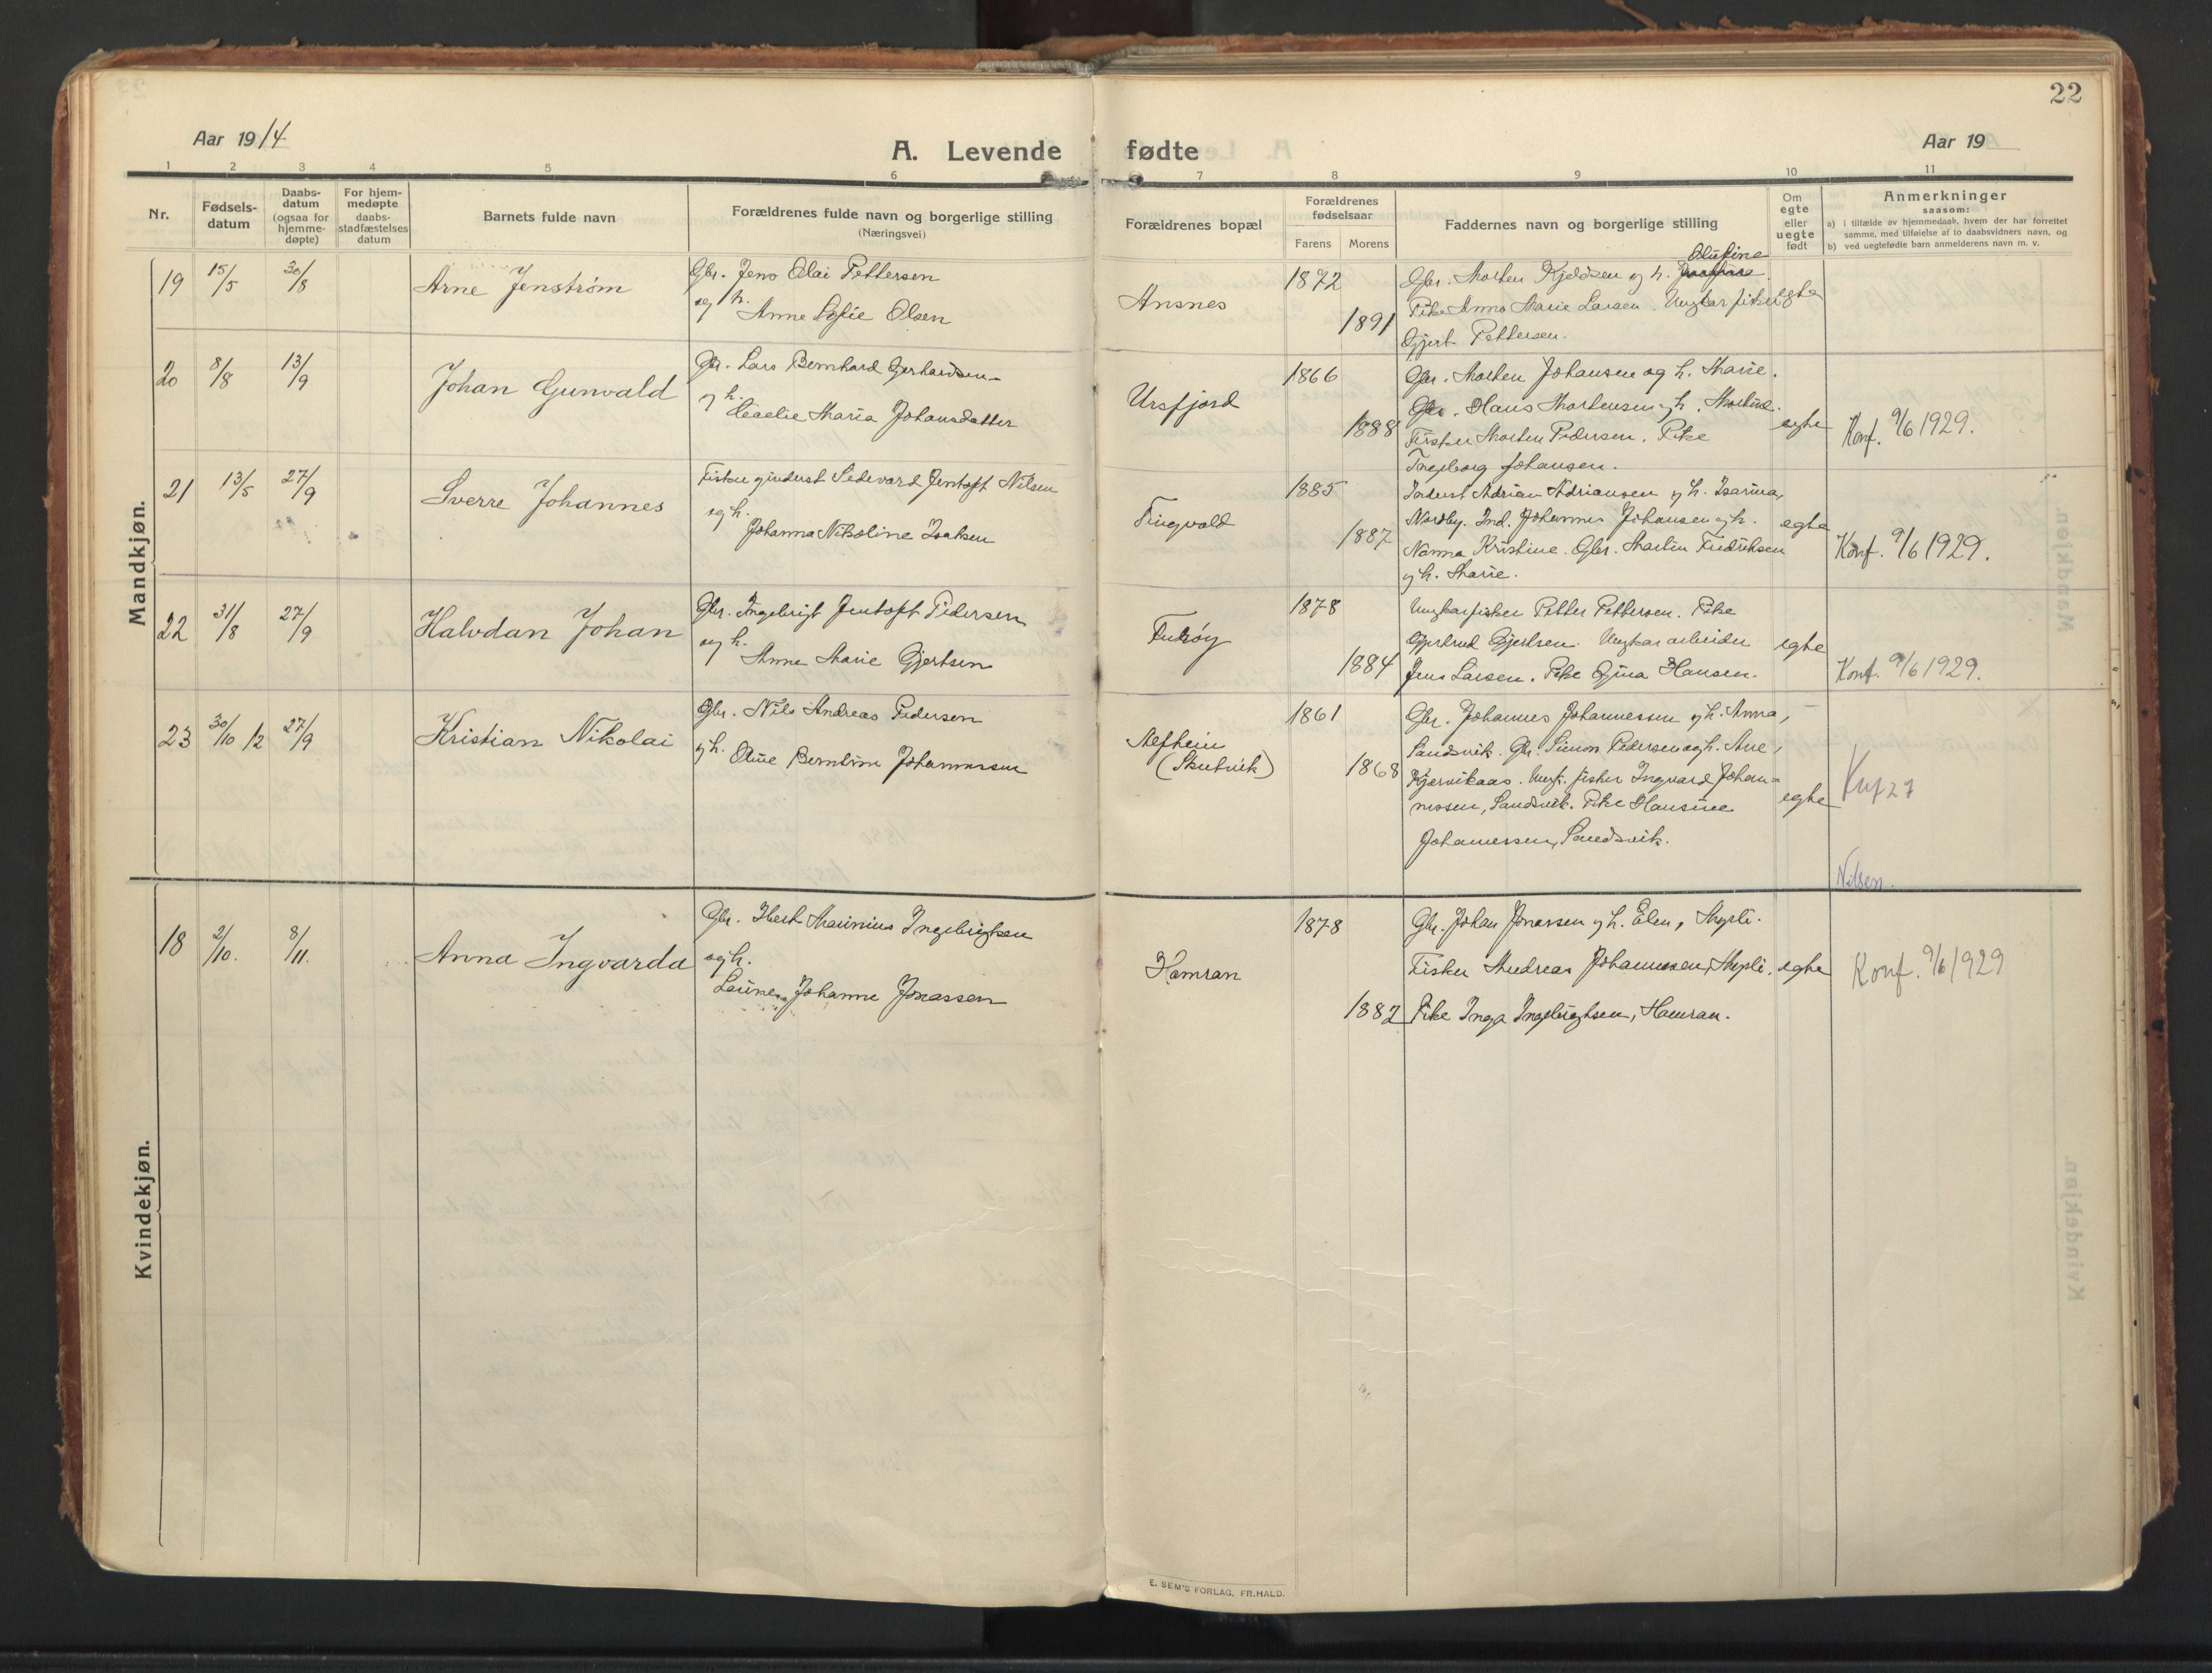 22
Aar 1914
A. Levende fødte
Aar 19
1 2 3 4 5 6 7 8 9 10 11
Nr.
Fødsels-
datum
Daabs-
datum
(ogsaa for
hjemme-
døpte)
For hjem-
medøpte
daabs-
stadfæstelses
datum
Barnets fulde navn
Forældrenes fulde navn og borgerlige stilling
(Næringsvei)
Forældrenes bopæl
Forældrenes
fødselsaar
Farens Morens
Faddernes navn og borgerlige stilling
Om
egte
eller
uegte
født
Anmerkninger
saasom:
a) i tilfælde av hjemmedaab, hvem der har forrettet
samme, med tilføielse af to daabsvidners navn, og
b) ved uegtefødte barn anmelderens navn m. v.
Mandkjøn.
19 15/5 30/8 Arne Jenstrøm
Gbr. Jens Olai Pettersen
og h.
Anne Sofie Olsen
Ansnes
1872
1891
Olufine
Gbr. Morten Kjeldsen og h.
Pike Anna Marie Larsen. Ungkar fisker
Gjert Pettersen.
egte
20 8/8 13/9 Johan Gunvald
Gbr. Lars Bernhard Gerhardsen
og h.
Maria Johansdatter
Ursfjord
1866
1888
Gbr. Morten Johansen og h. Marie.
Gbr. Hans Mortensen og h.
Fisker Morten Pedersen. Pike
Ingeborg Johansen.
egte
Konf. 9/6 1929.
21 13/5 27/9 Sverre Johannes
Fisker og inderst Sedevard Jentoft Nilsen
og h.
Johanna Nikoline Isaksen
Trugvold
1885
1887
Inderst Adrian Adriansen og h. Isarina,
Nordby. Ind. Johannes Johansen og h.
Nanna Kristine. Gbr. Martin Fredriksen
og h. Marie.
egte
Konf. 9/6 1929.
22 31/8 27/9 Halvdan Johan
Gbr. Ingebrigt Jentoft Pedersen
og h.
Anne Marie Gjertsen
1878
1884
Ungkarfisker Petter Pettersen. Pike
Gjertrud Gjertsen. Ungkar arbeider
Jens Larsen. Pike Gina Hansen.
egte
Konf. 9/6 1929.
23 30/10 12 27/9 Kristian Nikolai
Gbr. Nils Andreas Pedersen
og h. Oline Berntine Johannessen
(Skutvik)
1861
1868
Gbr. Johannes Johannessen og h. Anna,
Sandsvik. Gbr. Simon Pedersen og h. Ane,
Kjærvikaas. Ungk. fisker Ingvard Johan=
nessen, Sandsvik. Pike Hansine
Johannessen, Sandsvik.
egte
Knf 27
Nilsen.
Kvindekjøn.
18 2/10. 8/11. Anna Ingvarda
Gbr. Marinius Ingebrigtsen
og h.
Johanne Jonassen
Hamran
1878
1882
Gbr. Johan Jonassen og h. Elen,
Fisker Andreas Johannessen,
Pike Inga Ingebrigtsen, Hamran.
egte
Konf. 9/6 1929
E. SEM'S FORLAG, FR.HALD.